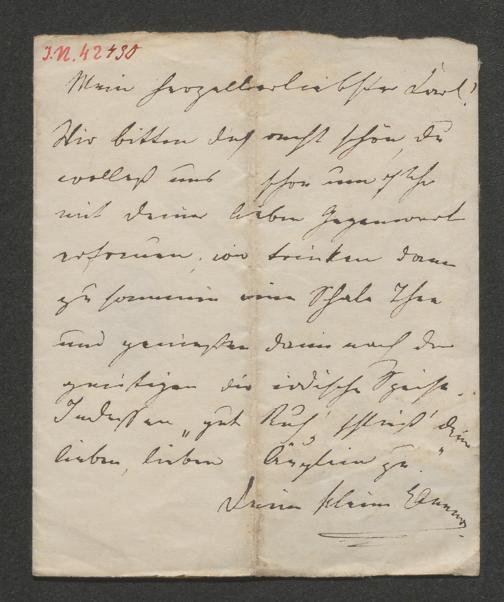 I.N. 42430
Mein herzallerliebster Karl!
Wir bitten dich recht schön, du
wollest uns schon um Uhr
mit deiner lieben Gegenwart
erfreuen, wir trinken dann
zusammen eine Schale Thee
und genießen dann nach der
geistigen die irdische Speise.
Indessen „gut Ruh', schließ' dein
lieben, lieben Äuglein zu."
Deine kleine